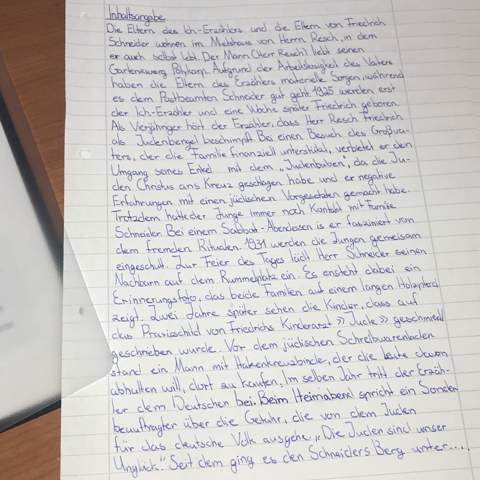 Inhaltsangabe
Die Eltern des Ich-Erzählers und die Eltern von Friedrich
Schneider wohnen im Mietshaus von Herrn Resch, in dem
er auch selbst lebt. Der Mann (Herr Resch) liebt seinen
Gartenzwerg Polykarp. Aufgrund der Arbeitslosigkeit des Vaters
haben die Eltern des Erzählers materielle Sorgen, während
es dem Postbeamten Schneider gut geht. 1925 werden erst
der Ich-Erzähler und eine Woche später Friedrich geboren.
Als Vierjähriger hört der Erzähler, dass Herr Resch Friedrich
als Judenbengel beschimpft. Bei einen Besuch des Großva-
ters, der die Familie finanziell unterstützt, verbietet er den
Umgang seines Enkel mit dem „Judenbuben", da die Ju-
den Christus ans Kreuz geschlagen habe und er negative
Erfahrungen mit einen jüdischen Vorgesetzten gemacht habe.
Trotzdem hatte der Junge immer noch Kontakt mit Familie
Schneider. Bei einem Sabbat-Abendessen is er fasziniert von
dem fremden Ritualen. 1931 werden die Jungen gemeinsam
eingeschult. Zur Feier des Tages läd Herr Schneider seinen
Nachbarn auf dem Rummelplatz ein. Es ensteht dabei ein
Erinnerungsfoto, das beide Familien auf einem langen Holzpferd
zeigt. Zwei Jahre später sehen die Kinder, dass auf
das Praxisschild von Friedrichs Kinderarzt »Jude« geschmiert/
geschrieben wurde. Vor dem jüdischen Schreibwarenladen
stand ein Mann mit Hakenkreuzbinde, der die Leute davon
abhalten will, dort zu kaufen. Im selben Jahr tritt der Erzäh-
ler dem Deutschen bei. Beim Heimabend spricht ein Sonder-
beauftragter über die Gefahr, die von dem Juden
für das deutsche Volk ausgehe. „Die Juden sind unser
Unglück." Seit dem ging es den Schneiders Berg unter....,